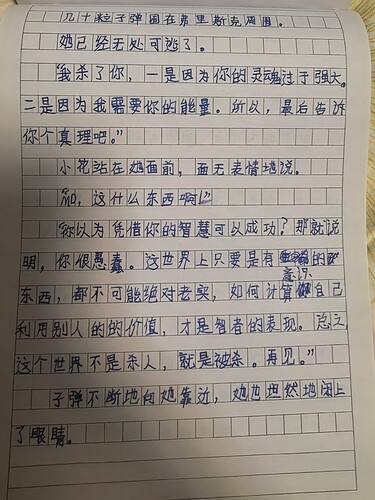 几十粒子弹围在弗里斯克周围。
她已经无处可逃了。
“我杀了你，一是因为你的灵魂过于强大。
二是因为我需要你的能量。所以，最后告诉
你个真理吧。”
小花站在她面前，面无表情地说。
“如，这什么东西啊！”
“你以为凭借你的智慧可以成功？那就说
明，你很愚蠢。这世界上只要是有意识的
东西，都不可能绝对老实，如何计算自己
利用别人的的价值，才是智者的表现。总之
这个世界不是杀人，就是被杀。再见。”
子弹不断地向她靠近，她也坦然地闭上
了眼睛。